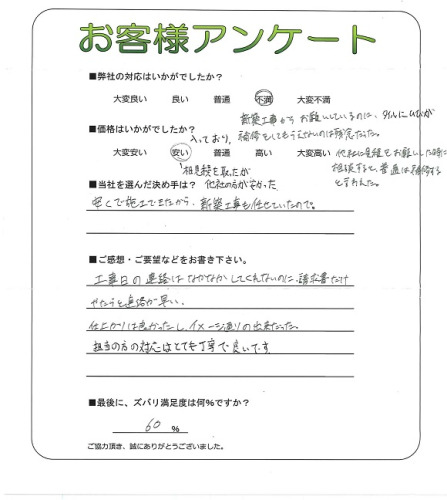 お客様アンケート
■弊社の対応はいかがでしたか？
大変良い 良い 普通 不満 大変不満
新築工事からお願いしているのに、タイルにひびが
入っており、補修をしてもらえないのは残念だった。
■価格はいかがでしたか？
大変安い 安い 普通 高い 大変高い
相見積を取ったが
他社の方が安かった
他社に見積をお願いした時に
相談すると、普通は補修する
と言われた。
■当社を選んだ決め手は？
安くで施工できたから、新築工事も任せていたので。
■ご感想・ご要望などをお書き下さい。
工事日の連絡はなかなかしてくれないのに、請求書だけ
やたらと連絡が早い、
仕上がりは良かったし、イメージ通りの出来だった。
担当の方の対応はとても丁寧で良いです。
■最後に、ズバリ満足度は何％ですか？
60 %
ご協力頂き、誠にありがとうございました。